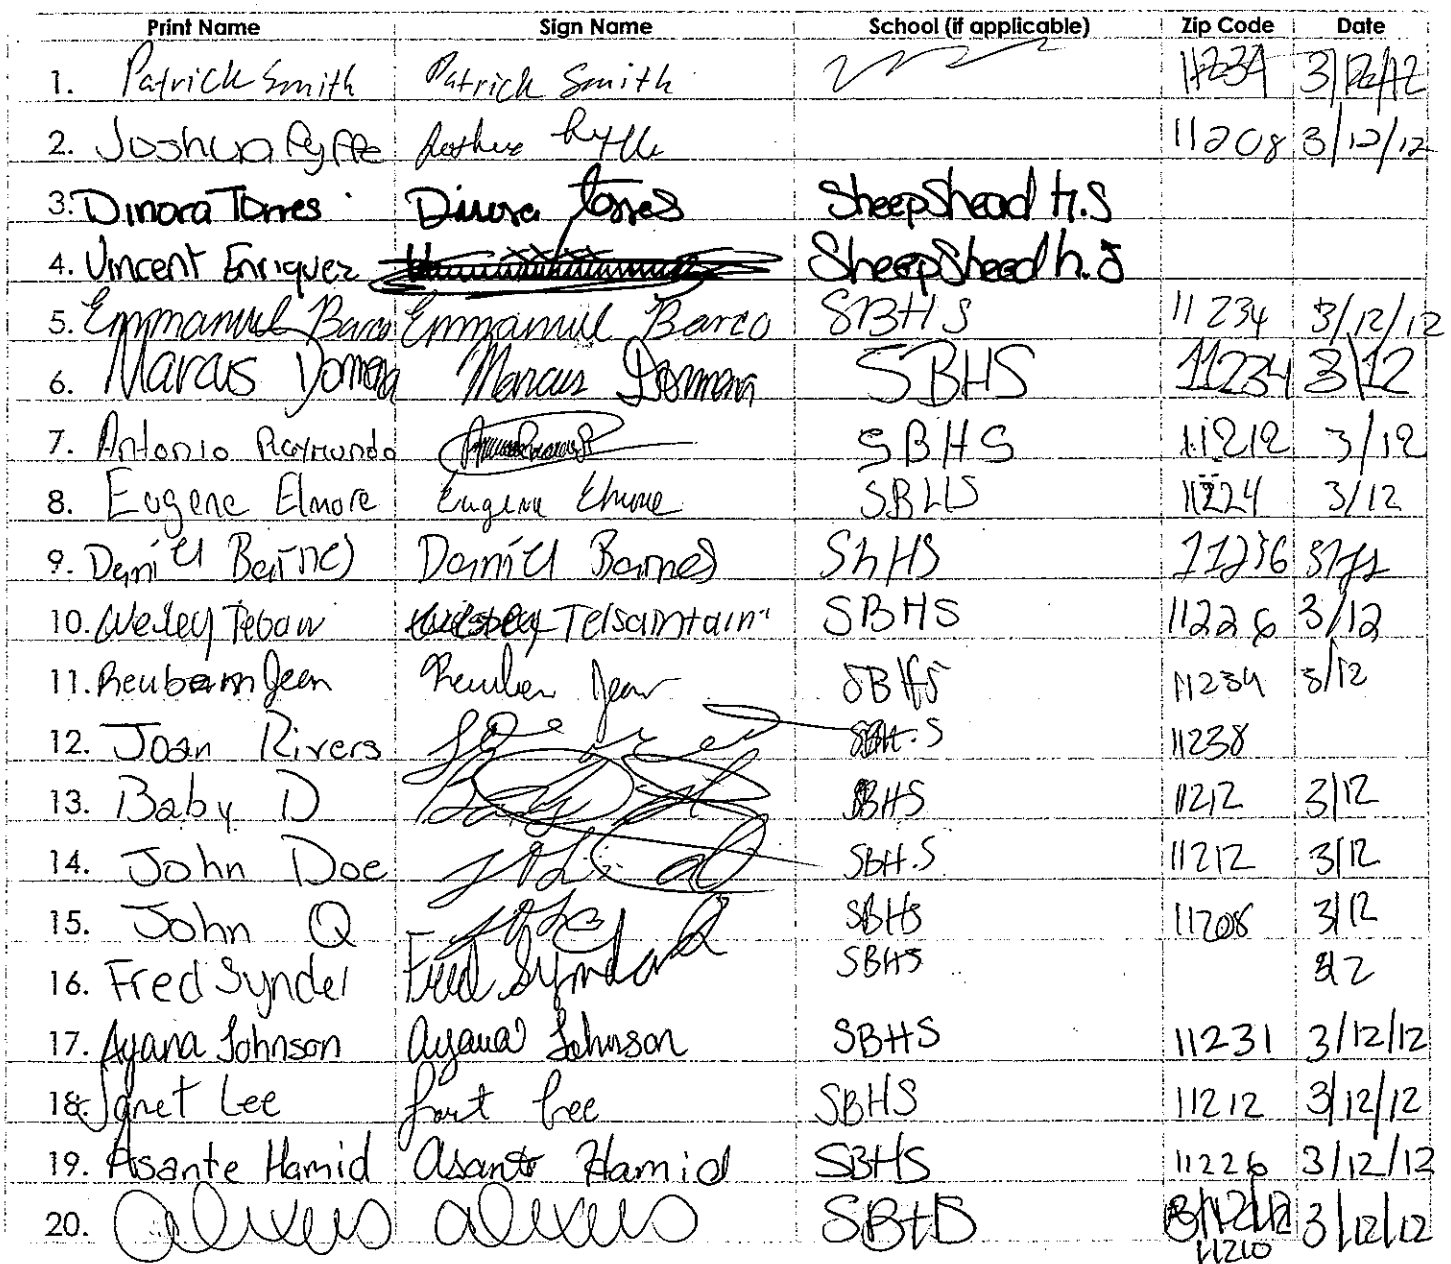 Print Name Sign Name School (if applicable) Zip Code Date
1. Patrick Smith Patrick Smith 11234 3/12/12
2. Joshua Fyffe Joshua Fyffe 11208 3/12/12
3. Dinora Torres Dinora Torres SheepShead H.S
4. Vincent Enriquez SheepShead h.S
5. Emmanuel Barco Emmanuel Barco SBHS 11234 3/12/12
6. Marcus Marcus SBHS 11234 3/12
7. Antonio Raymundo SBHS 11212 3/12
8. Eugene Elmore Eugene Elmore SBHS 11224 3/12
9. Daniel Barnes Daniel Barnes ShHS 11236
10. Wesley Telsaintain SBHS 11226 3/12
11. Reuben Jean Reuben Jean SBHS 11234 3/12
12. Joan Rivers SBH.S 11238
13. Baby D Baby D SBHS 11212 3/12
14. John Doe SBH.S 11212 3/12
15. John Q SBHS 11208 3/12
16. Fred Synder Fred SBHS
17. Ayana Johnson Ayana Johnson SBHS 11231 3/12/12
18. Janet Lee Janet Lee SBHS 11212 3/12/12
19. Asante Hamid Asante Hamid SBHS 11226 3/12/12
20. alexus alexus SBHS 11210 3/12/12